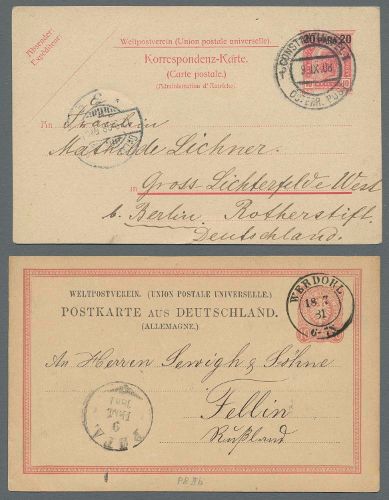 Absender:
Expéditeur:
Weltpostverein (Union postale universelle).
Korrespondenz-Karte.
(Carte postale.)
(Administration d'Autriche.)
20 20
10
CONSTANTINOPEL
9 IX 08
OESTERR. POST
An Fräulein
Mathilde Lichner.
Gross Lichterfelde West
b. Berlin. Rotherstift.
Deutschland.
WELTPOSTVEREIN. (UNION POSTALE UNIVERSELLE.)
POSTKARTE AUS DEUTSCHLAND.
(ALLEMAGNE.)
WERDOHL
18 7
81
6-7N
An Herren Sewigh & Söhne
Fellin
Rußland
9
1881